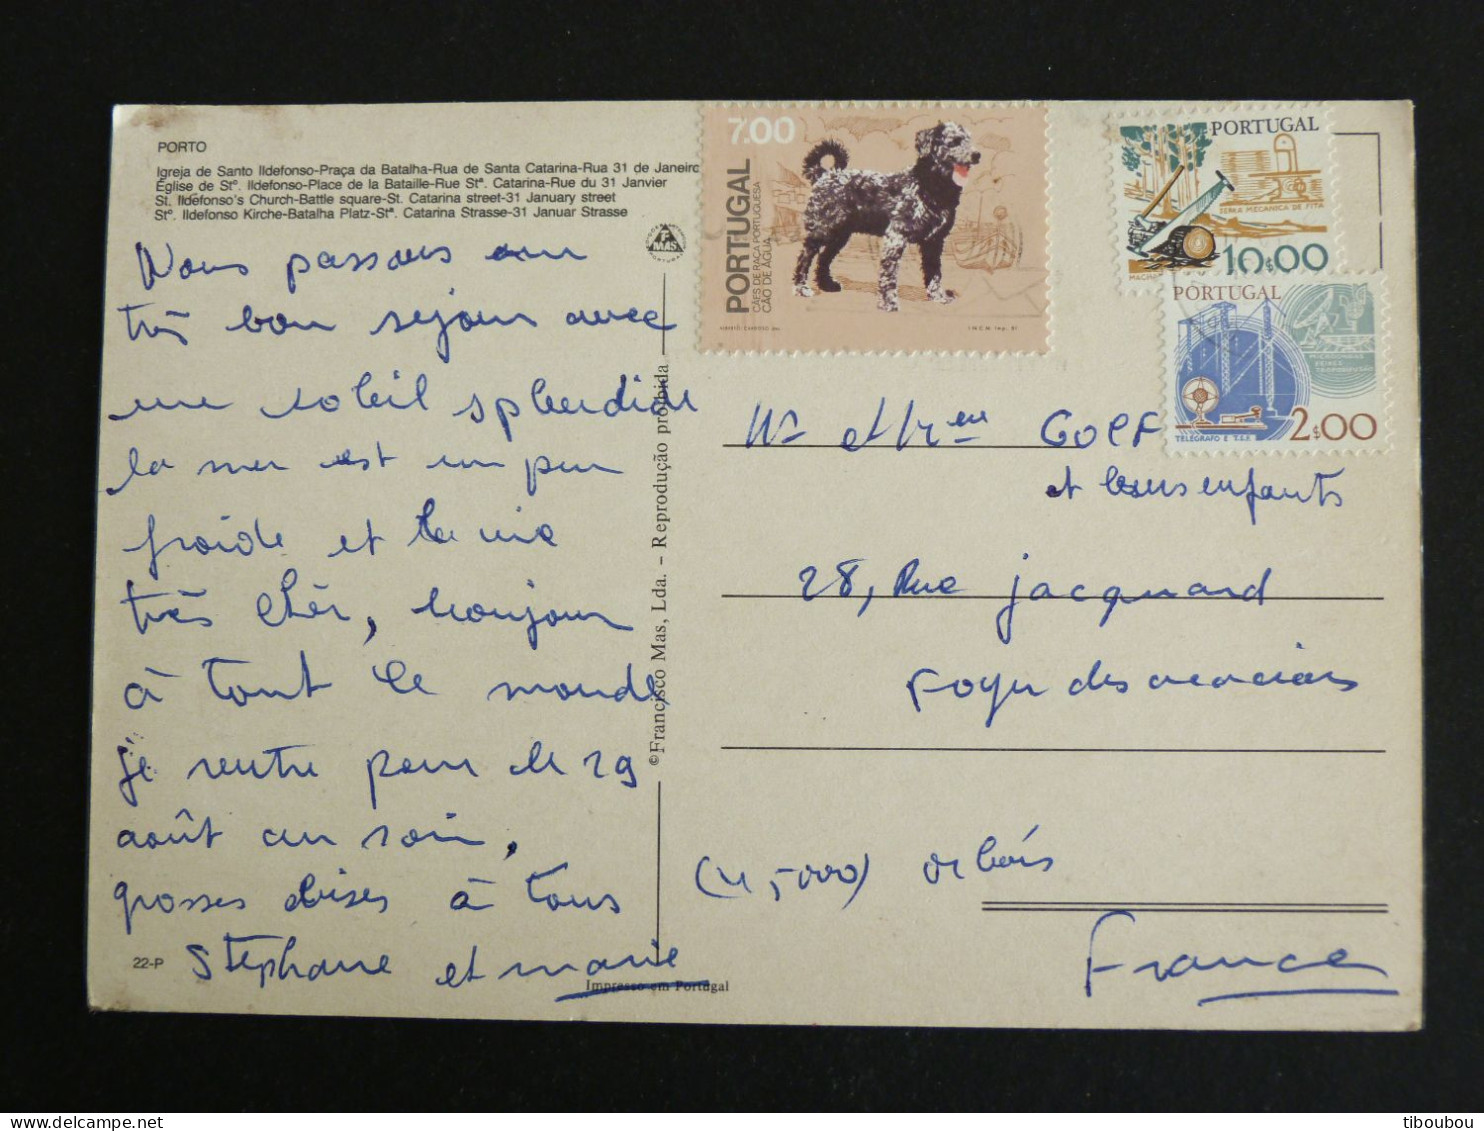 PORTO
Igreja de Santo Ildefonso-Praça da Batalha-Rua de Santa Catarina-Rua 31 de Janeiro
Église de Stº. Ildefonso-Place de la Bataille-Rue Stª. Catarina-Rue du 31 Janvier
St. Ildefonso's Church-Battle square-St. Catarina street-31 January street
Stº. Ildefonso Kirche-Batalha Platz-Stª. Catarina Strasse-31 Januar Strasse
Nous passons un
très bon sejour avec
une soleil splendide
la mer est un peu
froide et la vie
très chèr, bonjour
à tout le monde
je rentre pour le 29
août au soir,
grosses bises à tous
Stéphane et marie
22-P
Impresso em Portugal
©Francisco Mas, Lda. – Reprodução proibida
F
MAS
7.00
PORTUGAL
CÃES DE RAÇA PORTUGUESA
CÃO DE ÁGUA
I.N.C.M. Imp. 81
PORTUGAL
SERRA MECANICA DE FITA
10$00
PORTUGAL
TELEGRAFO E T.S.F.
2$00
Mr et Mme GOLF
et leurs enfants
28, Rue jacquard
Foyer des acacias
(45000) orléans
France
tiboubou